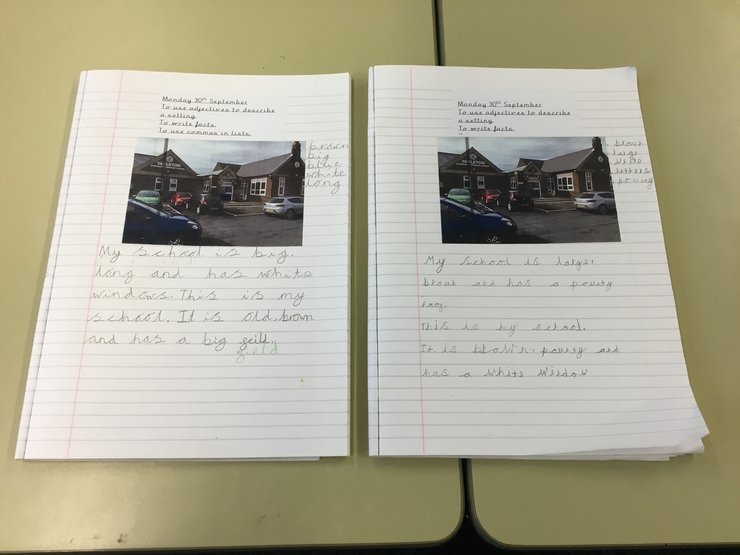 Monday 30th September
To use adjectives to describe
a setting.
To write facts.
To use commas in lists.
TARLETON
brown
big
blue
white
long
My school is big,
long and has white
windows. This is my
school. It is old, brown
and has a big geild.
g-eld
Monday 30th September
To use adjectives to describe
a setting.
To write facts.
TARLETON
large
white
letters
pouity
My school is large,
and has a pouity
This is my school.
It is brown, pouity and
has a white widow